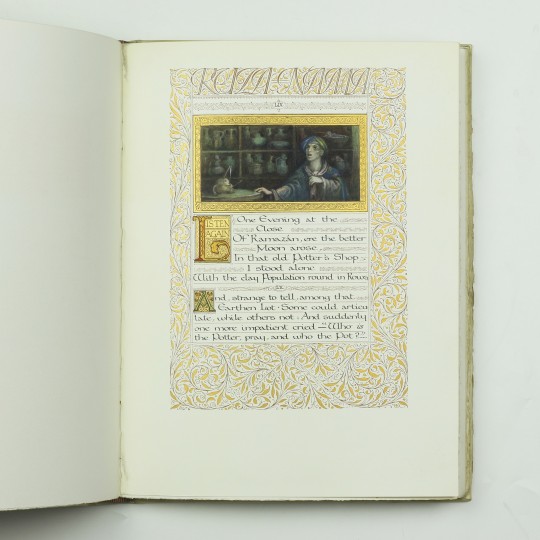 KUZA-NAMA
LIX
LISTEN AGAIN One Evening at the
Close
Of Ramazán, ere the better
Moon arose,
In that old Potter's Shop
I stood alone
With the clay Population round in Rows
LX
And, strange to tell, among that
Earthen Lot · Some could articu
late, while others not: And suddenly
one more impatient cried—"Who is
the Potter, pray, and who the Pot?"